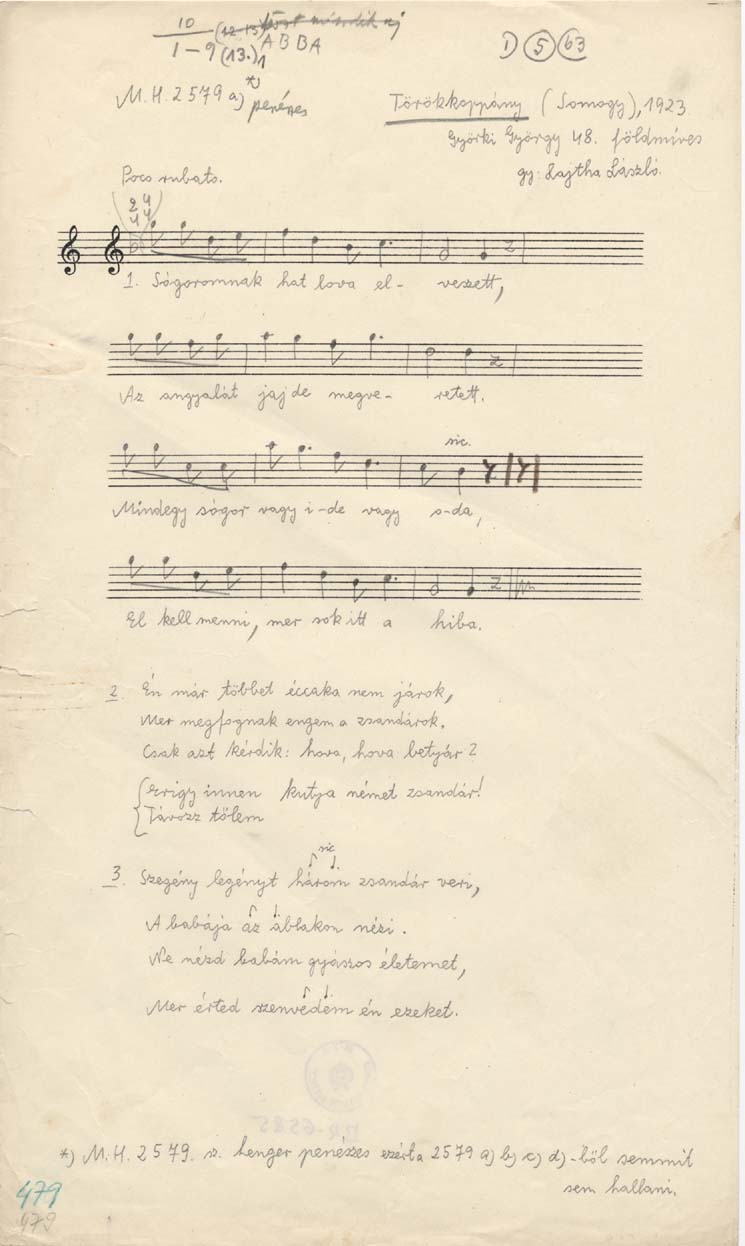 10
1-9 (12-13)
(13.)1 ABBA
D 5 63
M.H. 2579 a) *) penészes
Törökkoppány (Somogy), 1923
Györki György 48. földmíves
gy: Lajtha László.
Poco rubato.
2 4
4 4
1. Sógoromnak hat lova el- veszett,
Az angyalát jajde megve- retett.
sic.
Mindegy sógor vagy i-de vagy o-da,
El kell menni, mer sok itt a hiba.
2. Én már többet éccaka nem járok,
Mer megfognak engem a zsandárok.
Csak azt kérdik: hova, hova betyár?
Erigy innen kutya német zsandár!
Távozz tőlem
sic
3. Szegény legényt három zsandár veri,
A babája az ablakon nézi.
Ne nézd babám gyászos életemet,
Mer érted szenvedem én ezeket.
*) M.H. 2579. sz. henger penészes ezért a 2579 a) b) c) d)-ből semmit
sem hallani.
479
479